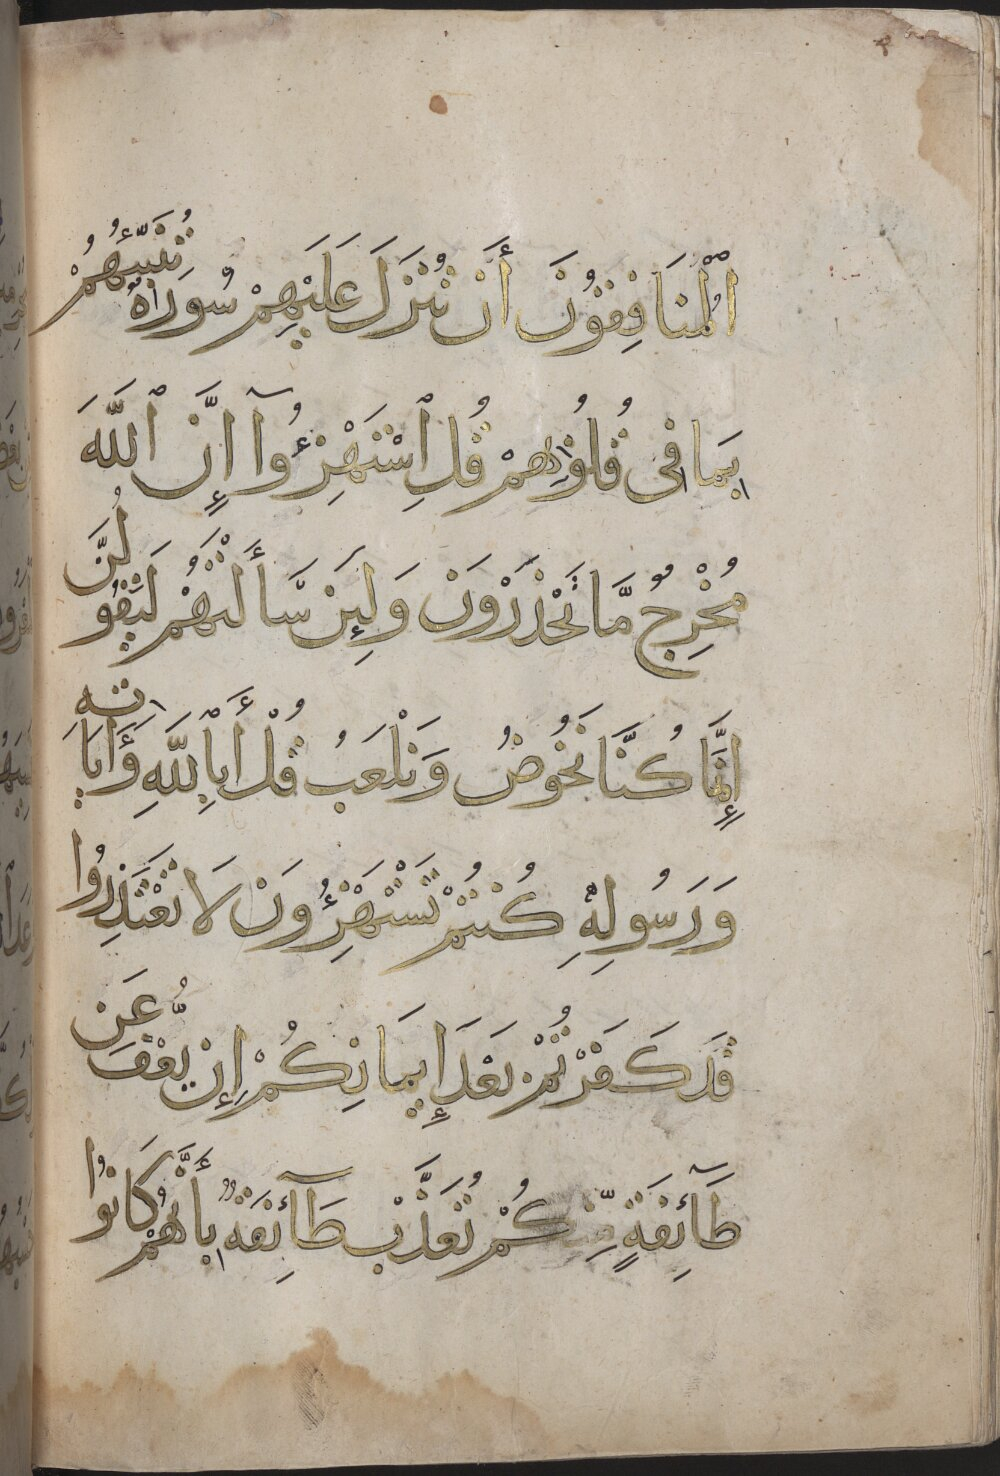 ٱلْمُنَافِقُونَ أَن تُنَزَّلَ عَلَيْهِمْ سُورَةٌ تُنَبِّئُهُمْ
بِمَا فِي قُلُوبِهِمْ قُلِ ٱسْتَهْزِءُوٓا إِنَّ ٱللَّهَ
مُخْرِجٌ مَّا تَحْذَرُونَ وَلَئِن سَأَلْتَهُمْ لَيَقُولُنَّ
إِنَّمَا كُنَّا نَخُوضُ وَنَلْعَبُ قُلْ أَبِٱللَّهِ وَءَايَاتِهِ
وَرَسُولِهِ كُنتُمْ تَسْتَهْزِءُونَ لَا تَعْتَذِرُوا
قَدْ كَفَرْتُم بَعْدَ إِيمَانِكُمْ إِن يُعْفَ عَن
طَآئِفَةٍ مِّنكُمْ تُعَذَّبْ طَآئِفَةٌ بِأَنَّهُمْ كَانُوا